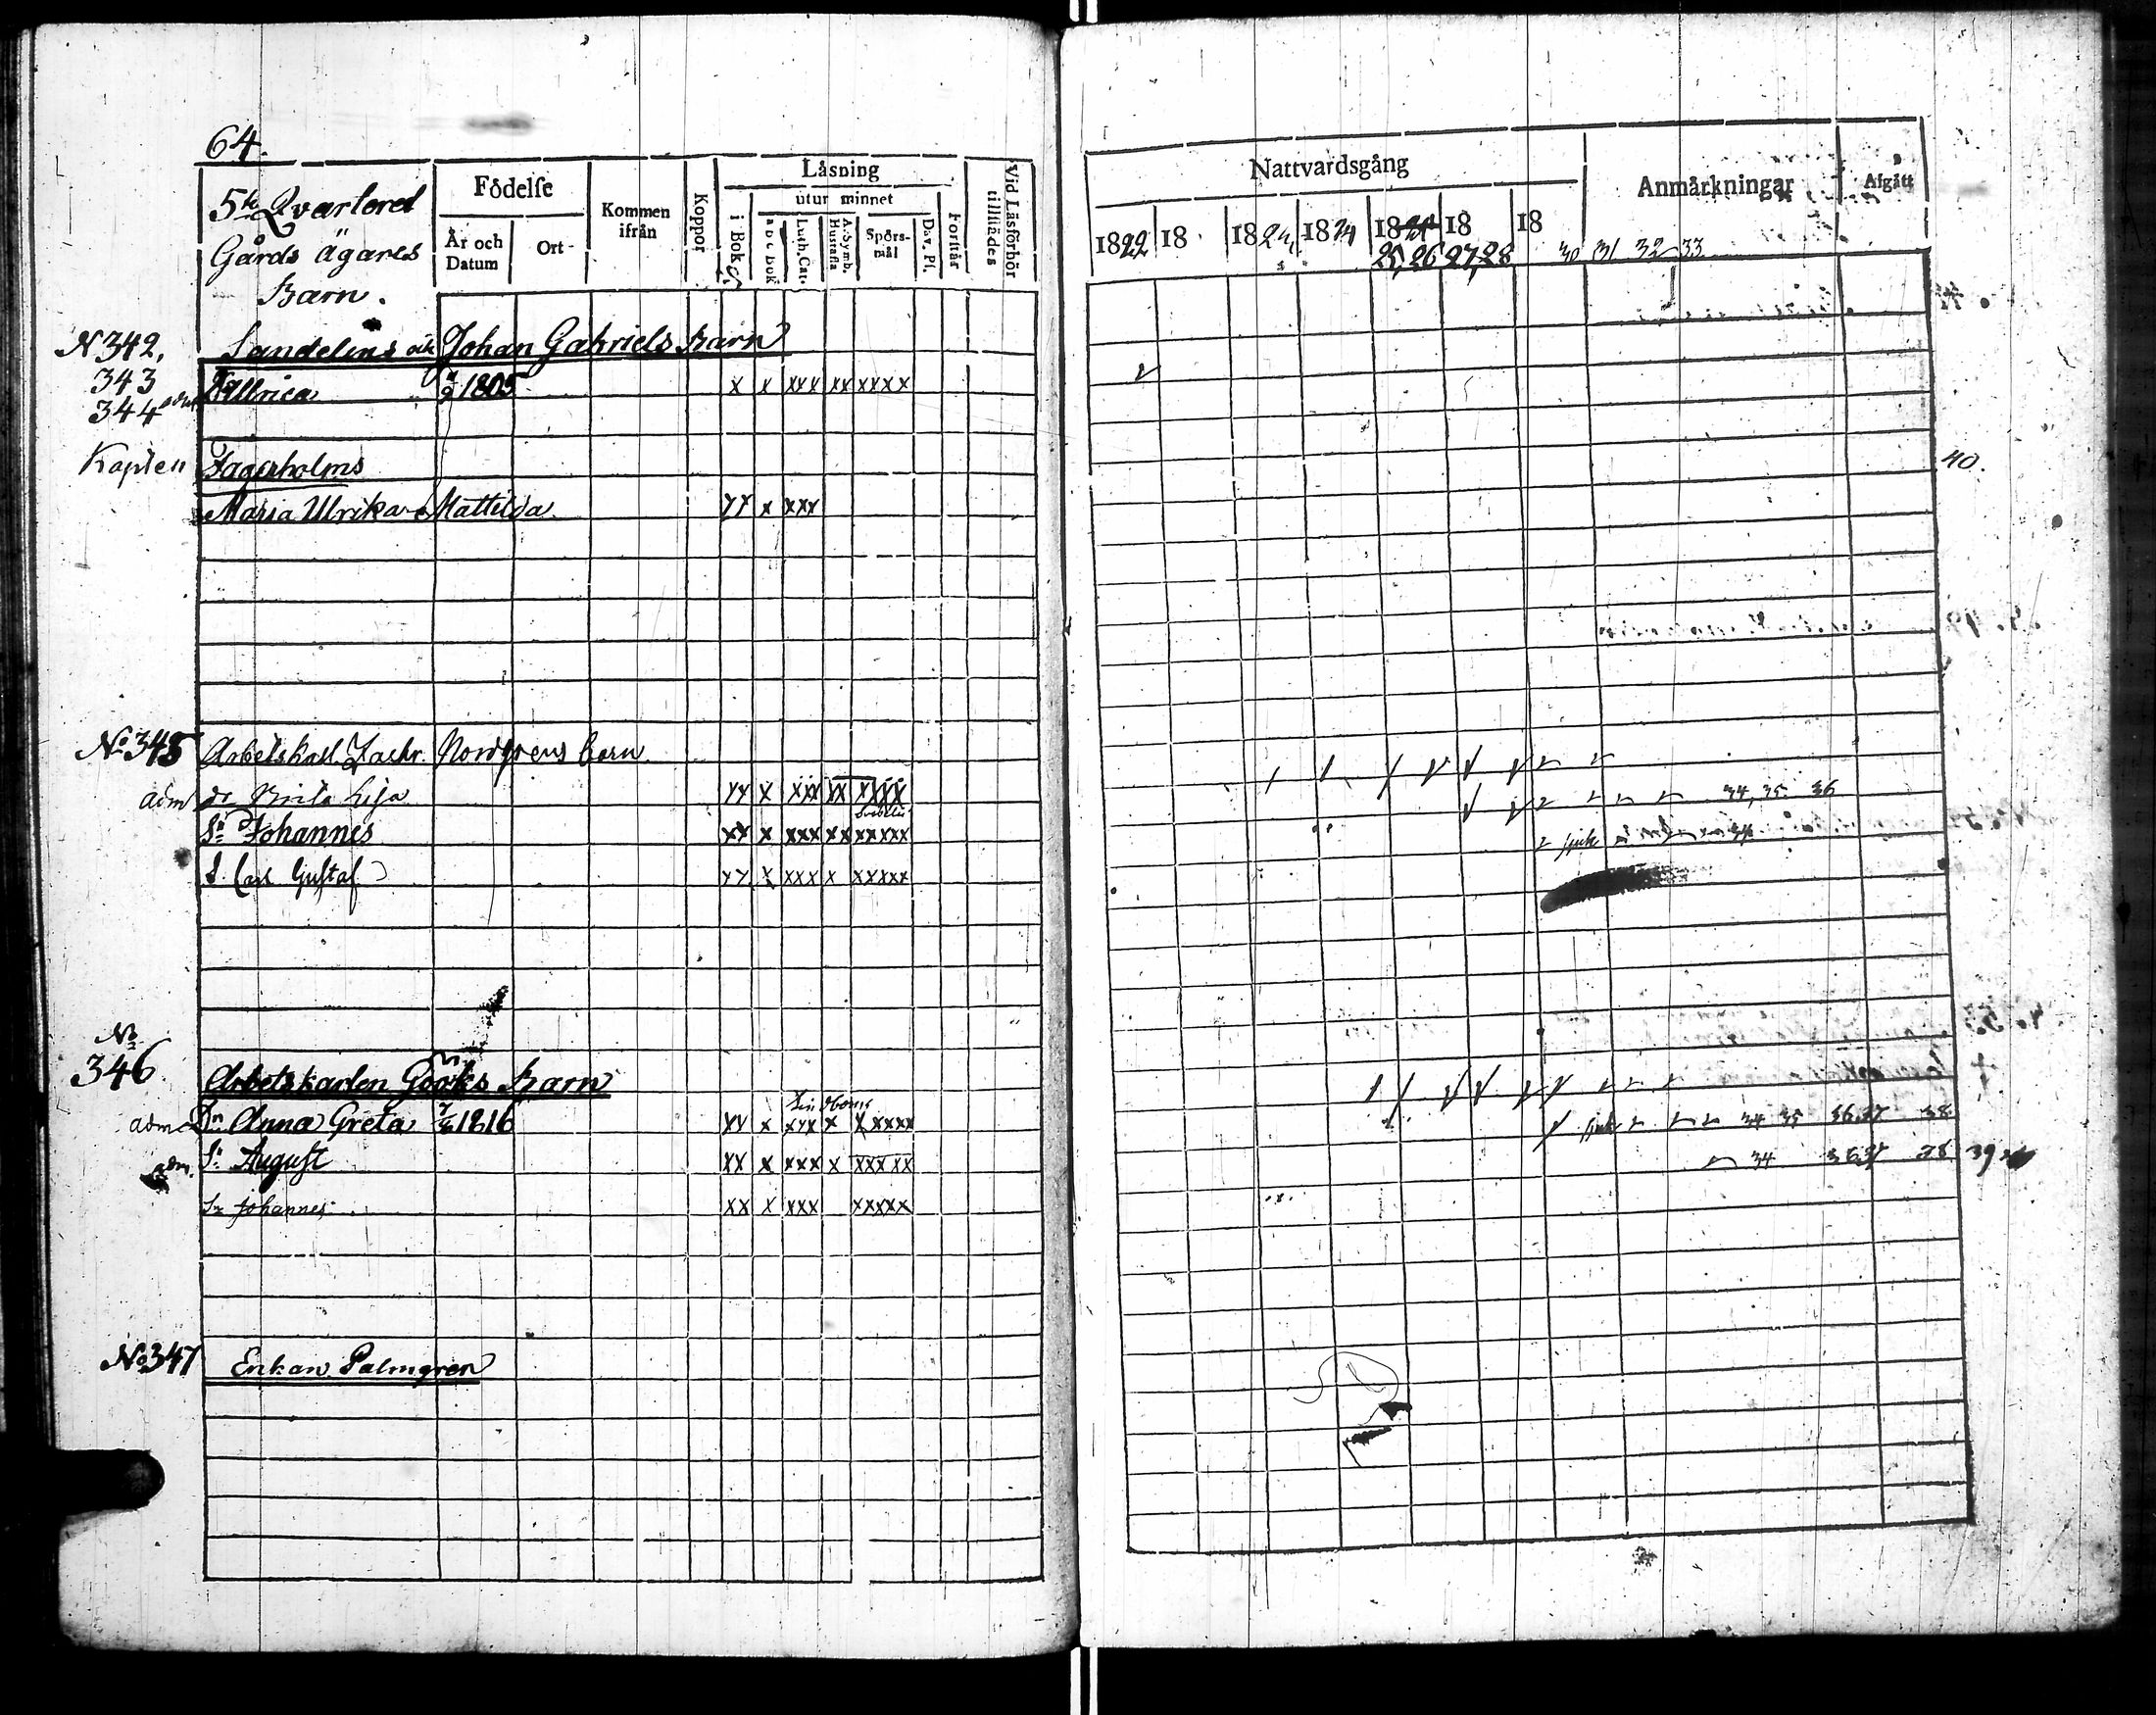 64.
5te Qvarteret
Gårds ägares
Barn.
Födelse
År och Datum
Ort
Kommen ifrån
Koppor
Läsning
i Bok
utur minnet
a b c Bok
Luth. Cat.
A. Symb. Hustafla
Spörsmål
Dav. Ps.
Förstår
Vid Läsförhör tillstädes
Nattvardsgång
1822 18 1824 18 18 18 18
25, 26 27, 28 30 31 32 33
Anmärkningar
Afgått
N 342, Sandelins och Johan Gabriels Barn
343 Ullrica 1805 x x xxx xx xxxx
344
Kapten Fagerholms 40.
Maria Ulrika Mattilda xx x xxx
No 345 Arbetskarl. Zachr. Nordgrens barn
adm Brita Lisa xx x xxx xx xxxx 34, 35 36
Sn Johannes xx x xxx xx xxxxx sjuk 34
S. Carl Gustaf xx x xxx x xxxxx
No
346 Arbetskarlen Gööks Barn
adm Dn Anna Greta 1816 xx x xxx x xxxxx sjuk 34 35 36 37 38
adm. Sn August xx x xxx x xxxxx 34 36 37 38 39
Sn Johannes xx x xxx xxxxx
No 347 Enkan Palmgren